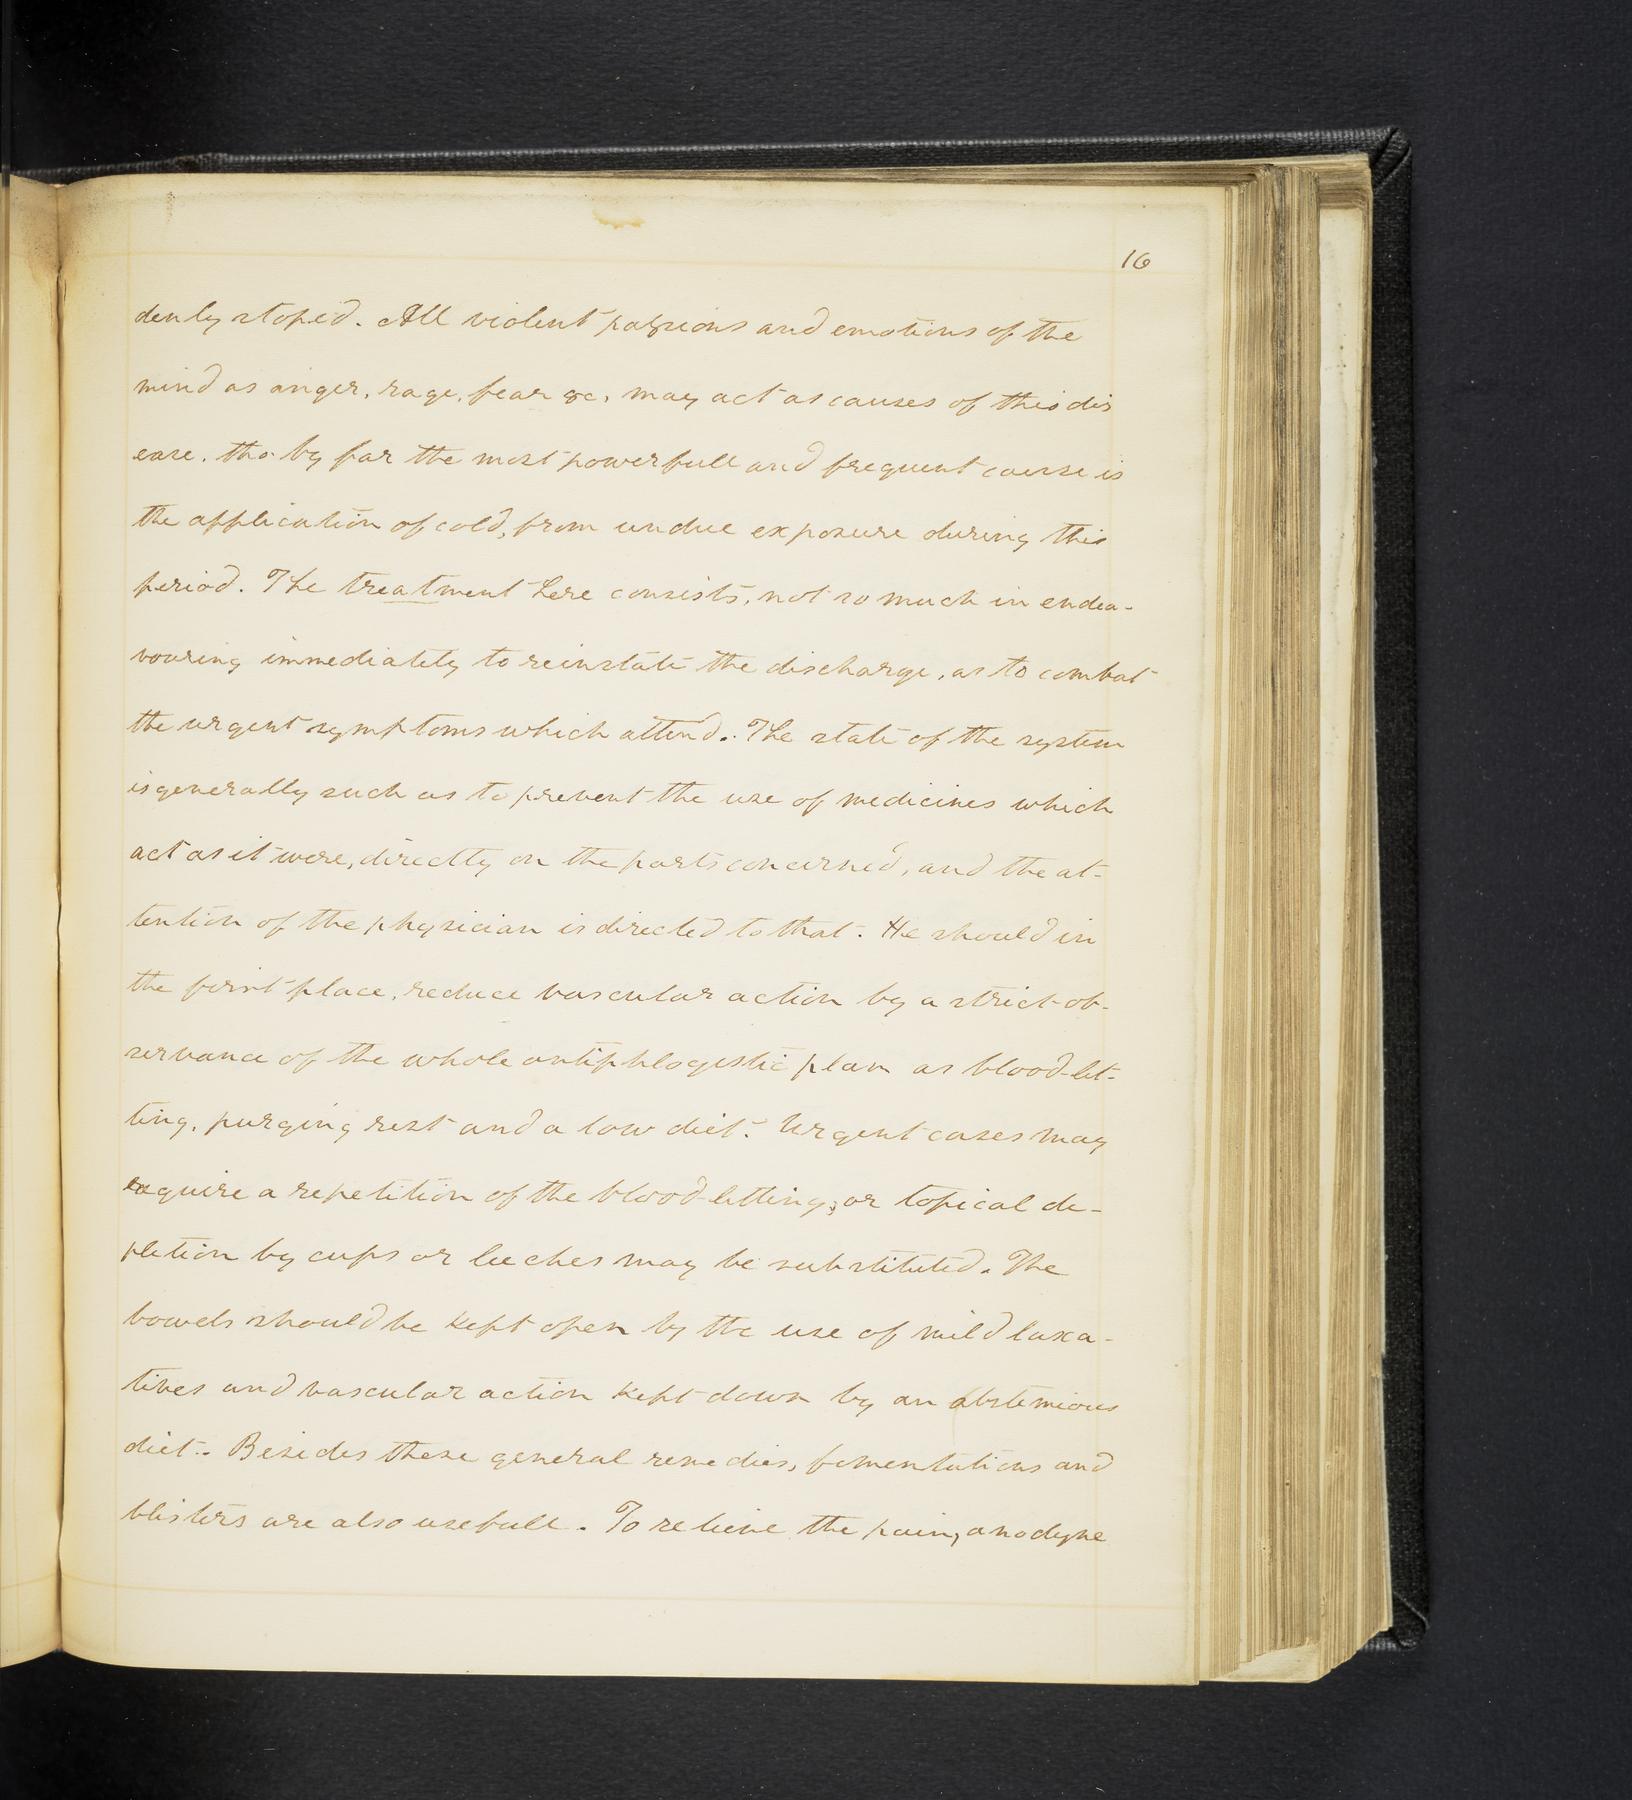 16
denly stoped. All violent passions and emotions of the
mind as anger, rage, fear &c, may act as causes of this dis
ease. tho by far the most powerfull and frequent cause is
the application of cold, from undue exposure during this
period. The treatment here consists, not so much in endea-
vouring immediately to reinstate the discharge, as to combat
the urgent symptoms which attend. The state of the system
is generally such as to prevent the use of medicines which
act as it were, directly on the parts concerned, and the at-
tention of the physician is directed to that. He should in
the first place, reduce vascular action by a strict ob-
servance of the whole antiphlogistic plan as blood-let-
ting, purging rest and a low diet. Urgent cases may
require a repetition of the blood-letting, or topical de-
pletion by cups or leeches may be substituted. The
bowels should be kept open by the use of mild laxa-
tives and vascular action kept down by an abstemious
diet. Besides these general remedies, fomentations and
blisters are also usefull. To relieve the pain, anodyne